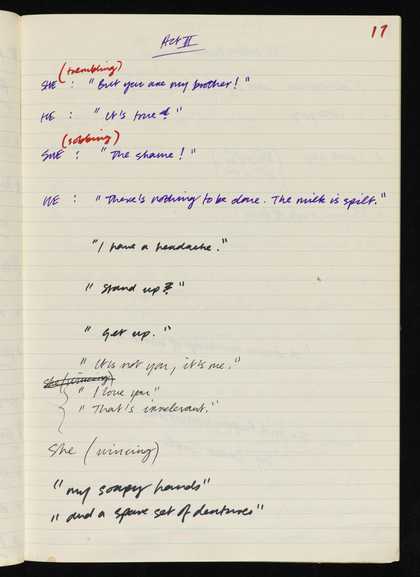 17
Act II
(trembling)
SHE : "But you are my brother!"
HE : "It's true!"
(sobbing)
SHE : "The shame!"
HE : "There's nothing to be done. The milk is spilt."
"I have a headache."
"Stand up?"
"Get up."
"It is not you, it is me."
She (wincing)
"I love you"
"That's irrelevant."
She (wincing)
"my soapy hands"
"and a spare set of dentures"